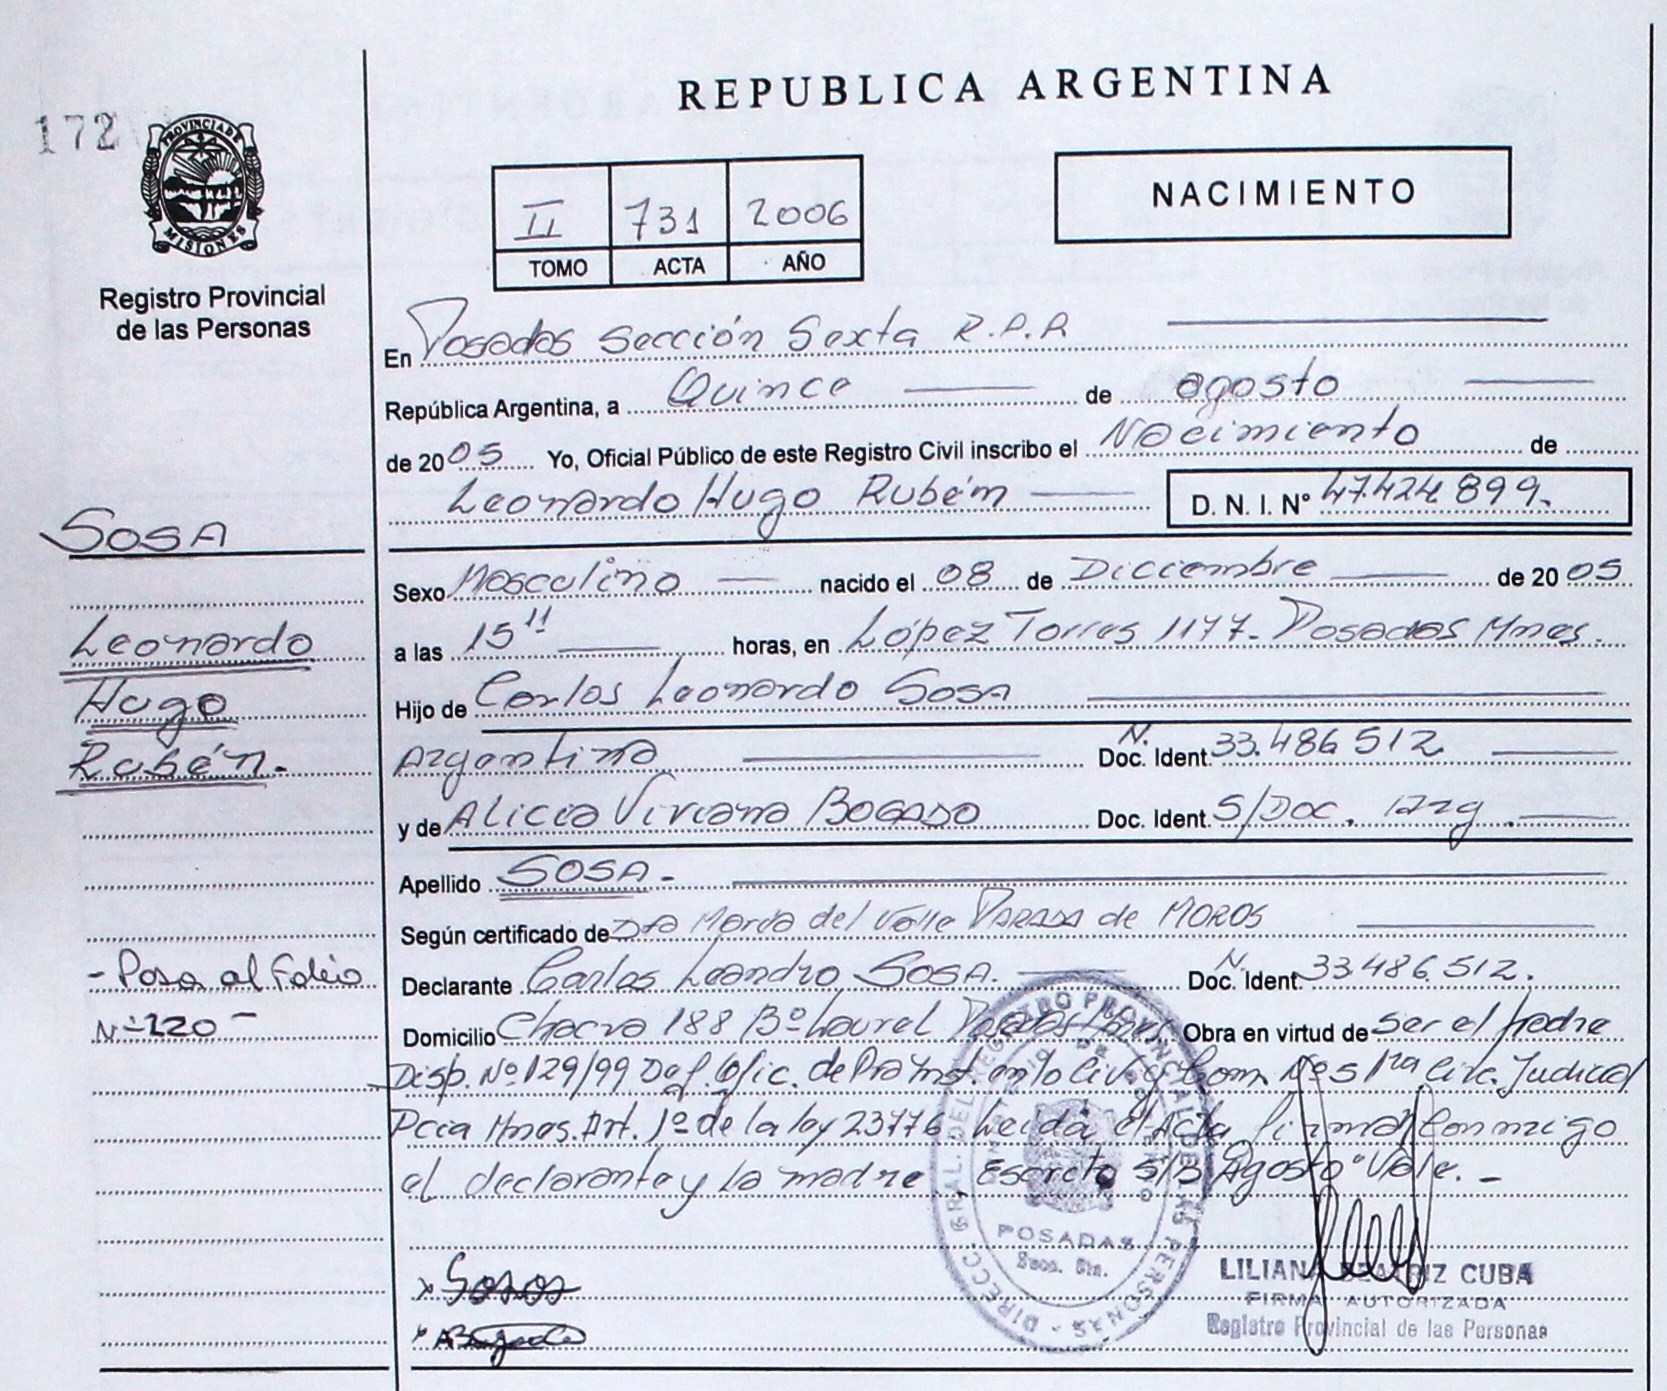 REPUBLICA ARGENTINA
172
PROVINCIA DE
MISIONES
Registro Provincial
de las Personas
II 731 2006
TOMO ACTA AÑO
NACIMIENTO
En Posadas Sección Sexta R.P.P
República Argentina, a Quince de agosto
de 2005 Yo, Oficial Público de este Registro Civil inscribo el Nacimiento de
Leonardo Hugo Rubém D. N. I. Nº 47.424 899.
SOSA
Leonardo
Hugo
Rubén.
- Pasa al Folio
Nº 220 -
Sexo Masculino nacido el 08 de Diciembre de 2005
a las 15 11 horas, en López Torres 1177. Posadas Mnes.
Hijo de Carlos Leonardo SOSA
Argentina N. Doc. Ident. 33.486 512
y de Alicia Viviana BOGADO Doc. Ident. S/Doc.
Apellido SOSA.
Según certificado de Dra María del Valle PARADA de MOROS
Declarante Carlos Leandro SOSA. N. Doc. Ident. 33.486.512.
Domicilio Chacra 188 Bº Laurel Posadas Mnes Obra en virtud de ser el padre
Disp. Nº 129/99 Def. Ofic. de Pra Inst. en lo Civ. y Com. Nº 5 1ra Circ. Judicial
Pcia Mnes. Art. 1º de la ley 23776 Leída el Acta firman conmigo
el declarante y la madre, Escrito S/R Agosto Vale. -
x Sosa
x ABogado
DIRECC. GRAL. DEL REGISTRO PROVINCIAL DE LAS PERSONAS
POSADAS
Secc. 6ta.
LILIANA BEATRIZ CUBA
FIRMA AUTORIZADA
Registro Provincial de las Personas